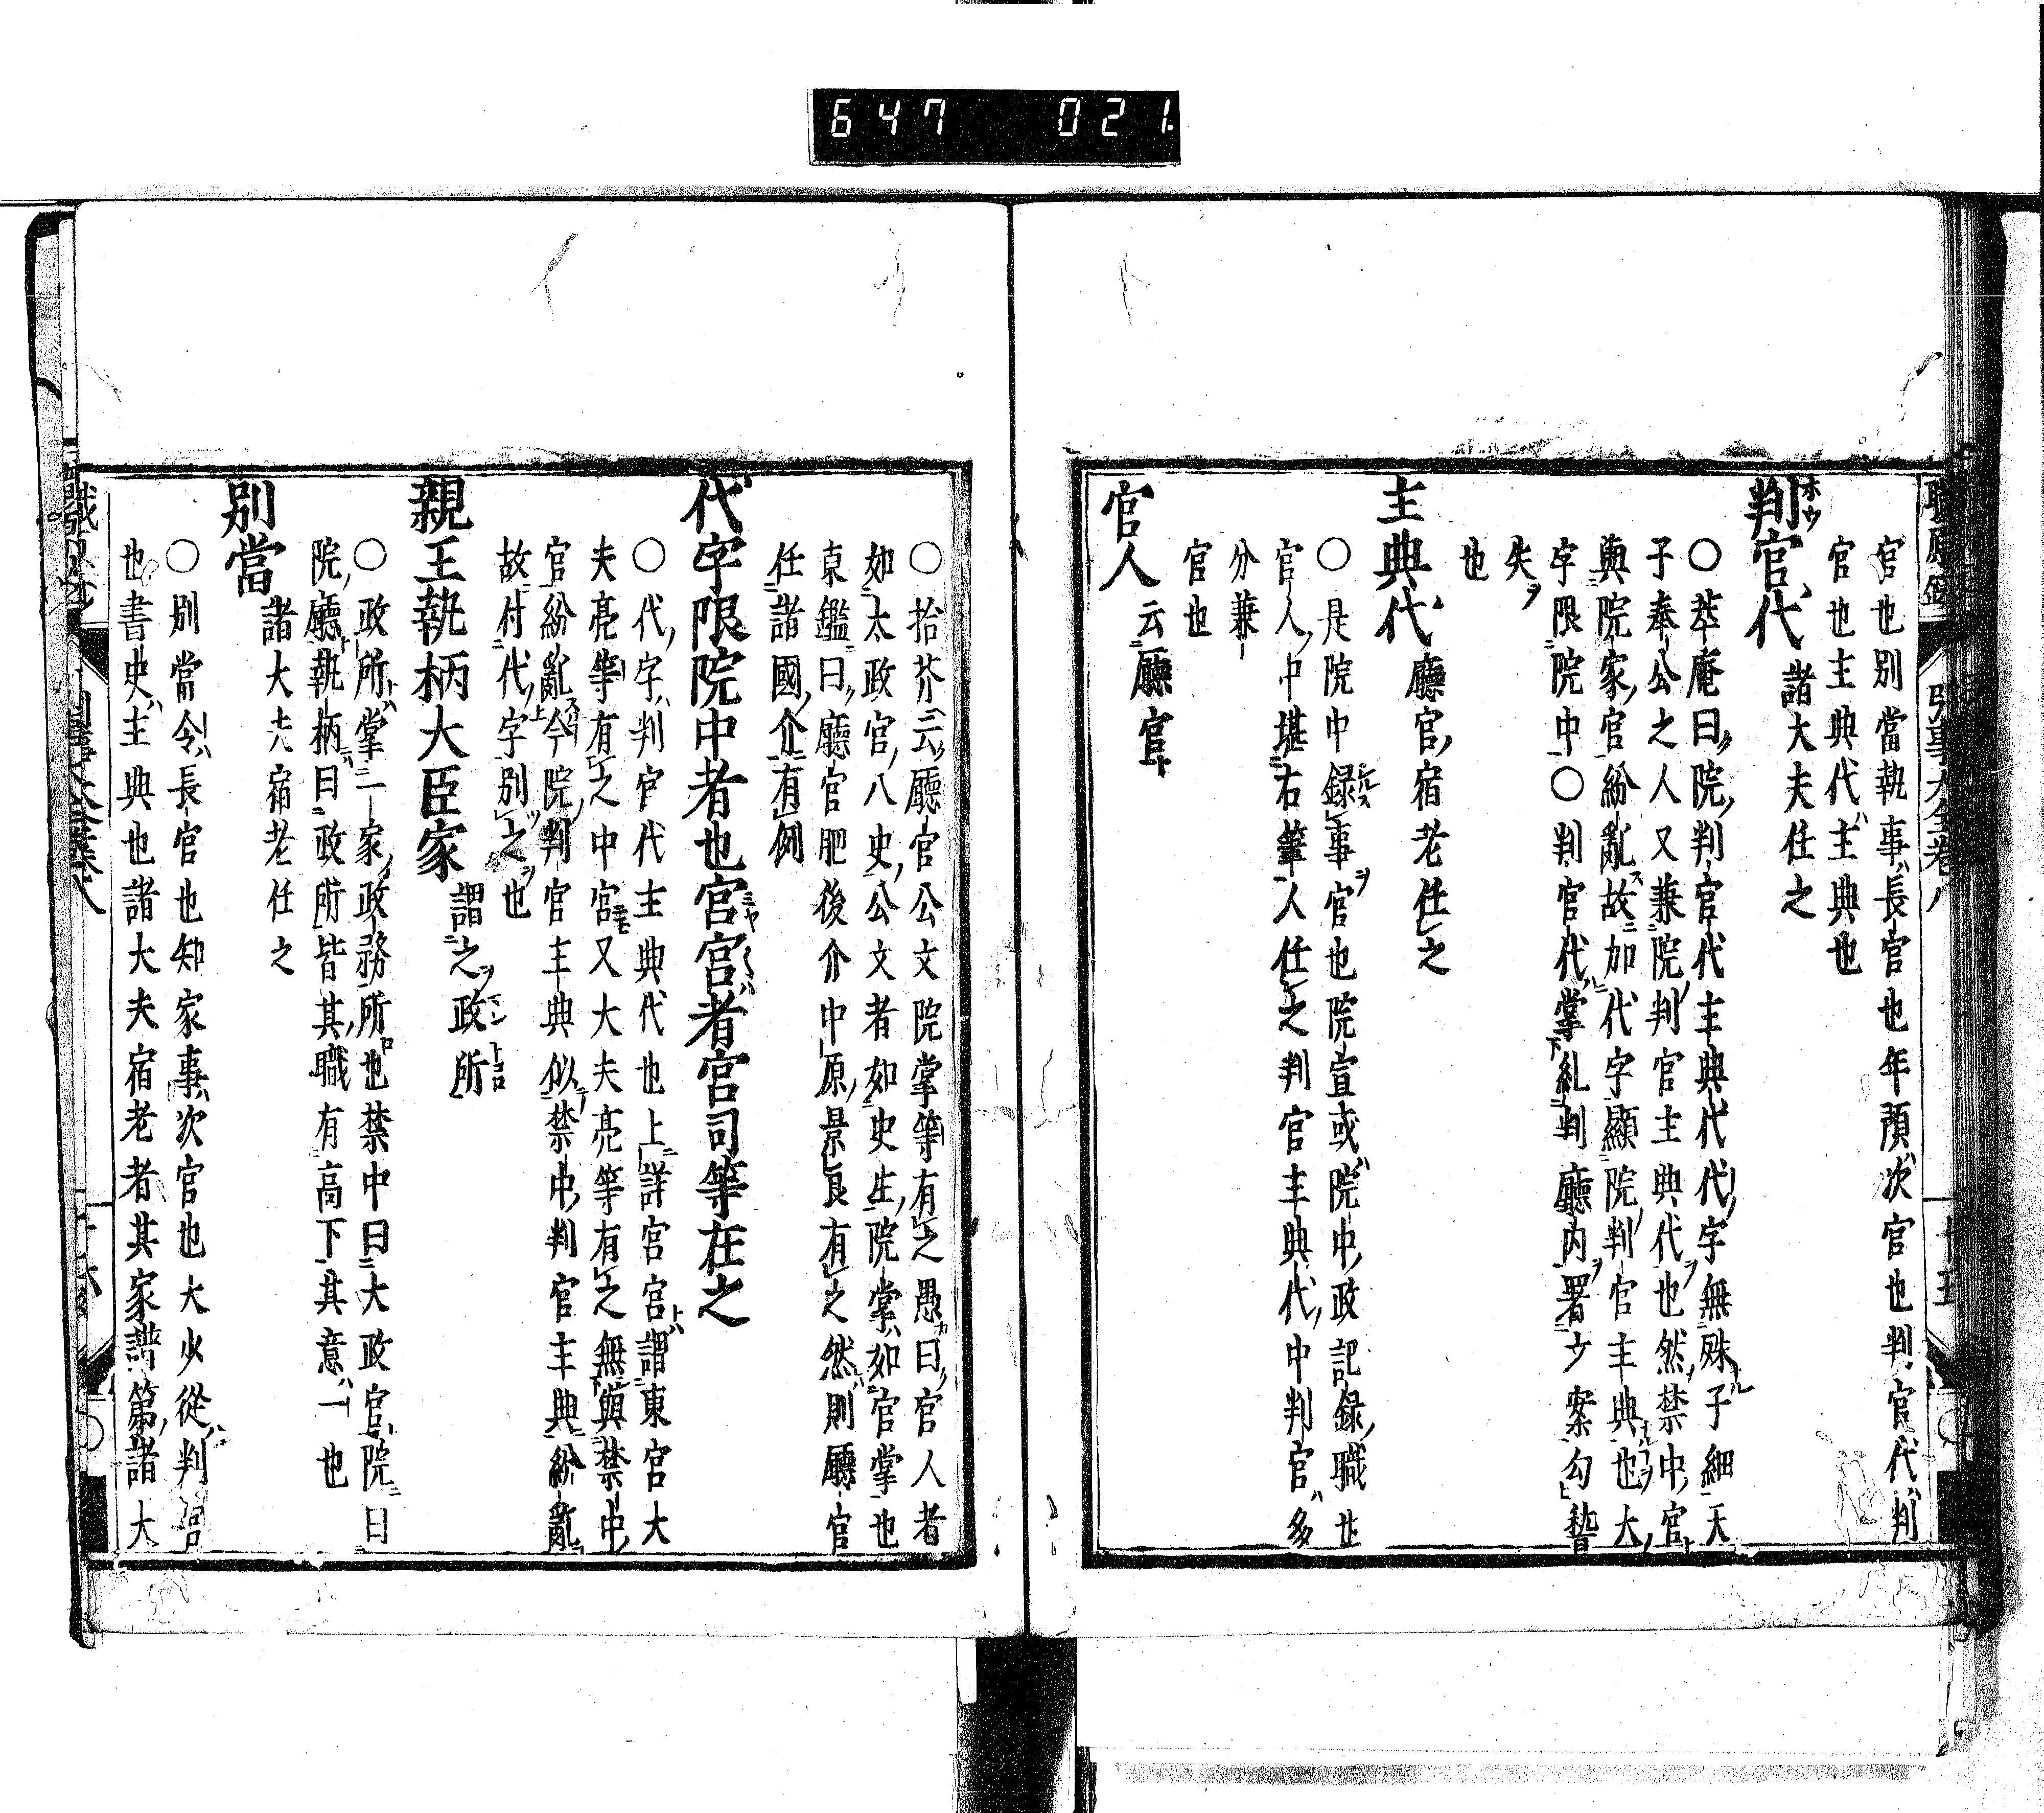 647 021
官也別當執事ハ長官也年預ハ次官也判官代ハ判
官也主典代ハ主典也
判官代 諸大夫任之
○萃庵曰院ノ判官代主典代代ノ字無殊子細天
子奉公之人又兼院ノ判官主典代也然禁中ノ官
與院家ノ官紛亂故加代字顯院ノ判官主典也大
字限院中○判官代掌糺判廳内署少案勾䅲
失ヲ
也
主典代 廳官ノ宿老任之
○是院中録事ヲ官也院宣或ハ院中ノ政記録ノ職也
官人ノ中堪右筆人任之判官主典代ノ中判官ハ多
分兼
官也
官人 云廳官ト
○拾芥云廳官公文院掌等有之愚曰官人者
如太政官ノ八史ノ公文者如史生院掌ハ如官掌也
東鑑曰廳官肥後介中原ノ景良有之然則廳官
任諸國ノ介有例
代字限院中者也宮宮者宮司等在之
○代ノ字ハ判官代主典代也上詳宮宮トハ謂東宮大
夫亮等有之中宮ニモ又大夫亮等有之無與禁中
官紛亂今院ノ判官主典似禁中ノ判官主典紛亂
故付代ノ字別之也
親王執柄大臣家 謂之ヲ政所
○政所トハ掌二一家ノ政務所也禁中曰大政官院曰
院ノ廳執柄曰政所皆其ノ職有高下其意ハ一也
別當 諸大夫宿老任之
○別當令ハ長官也知家事ハ次官也大少從ハ判官
也書史ハ主典也諸大夫宿老者其家譜第ノ諸大